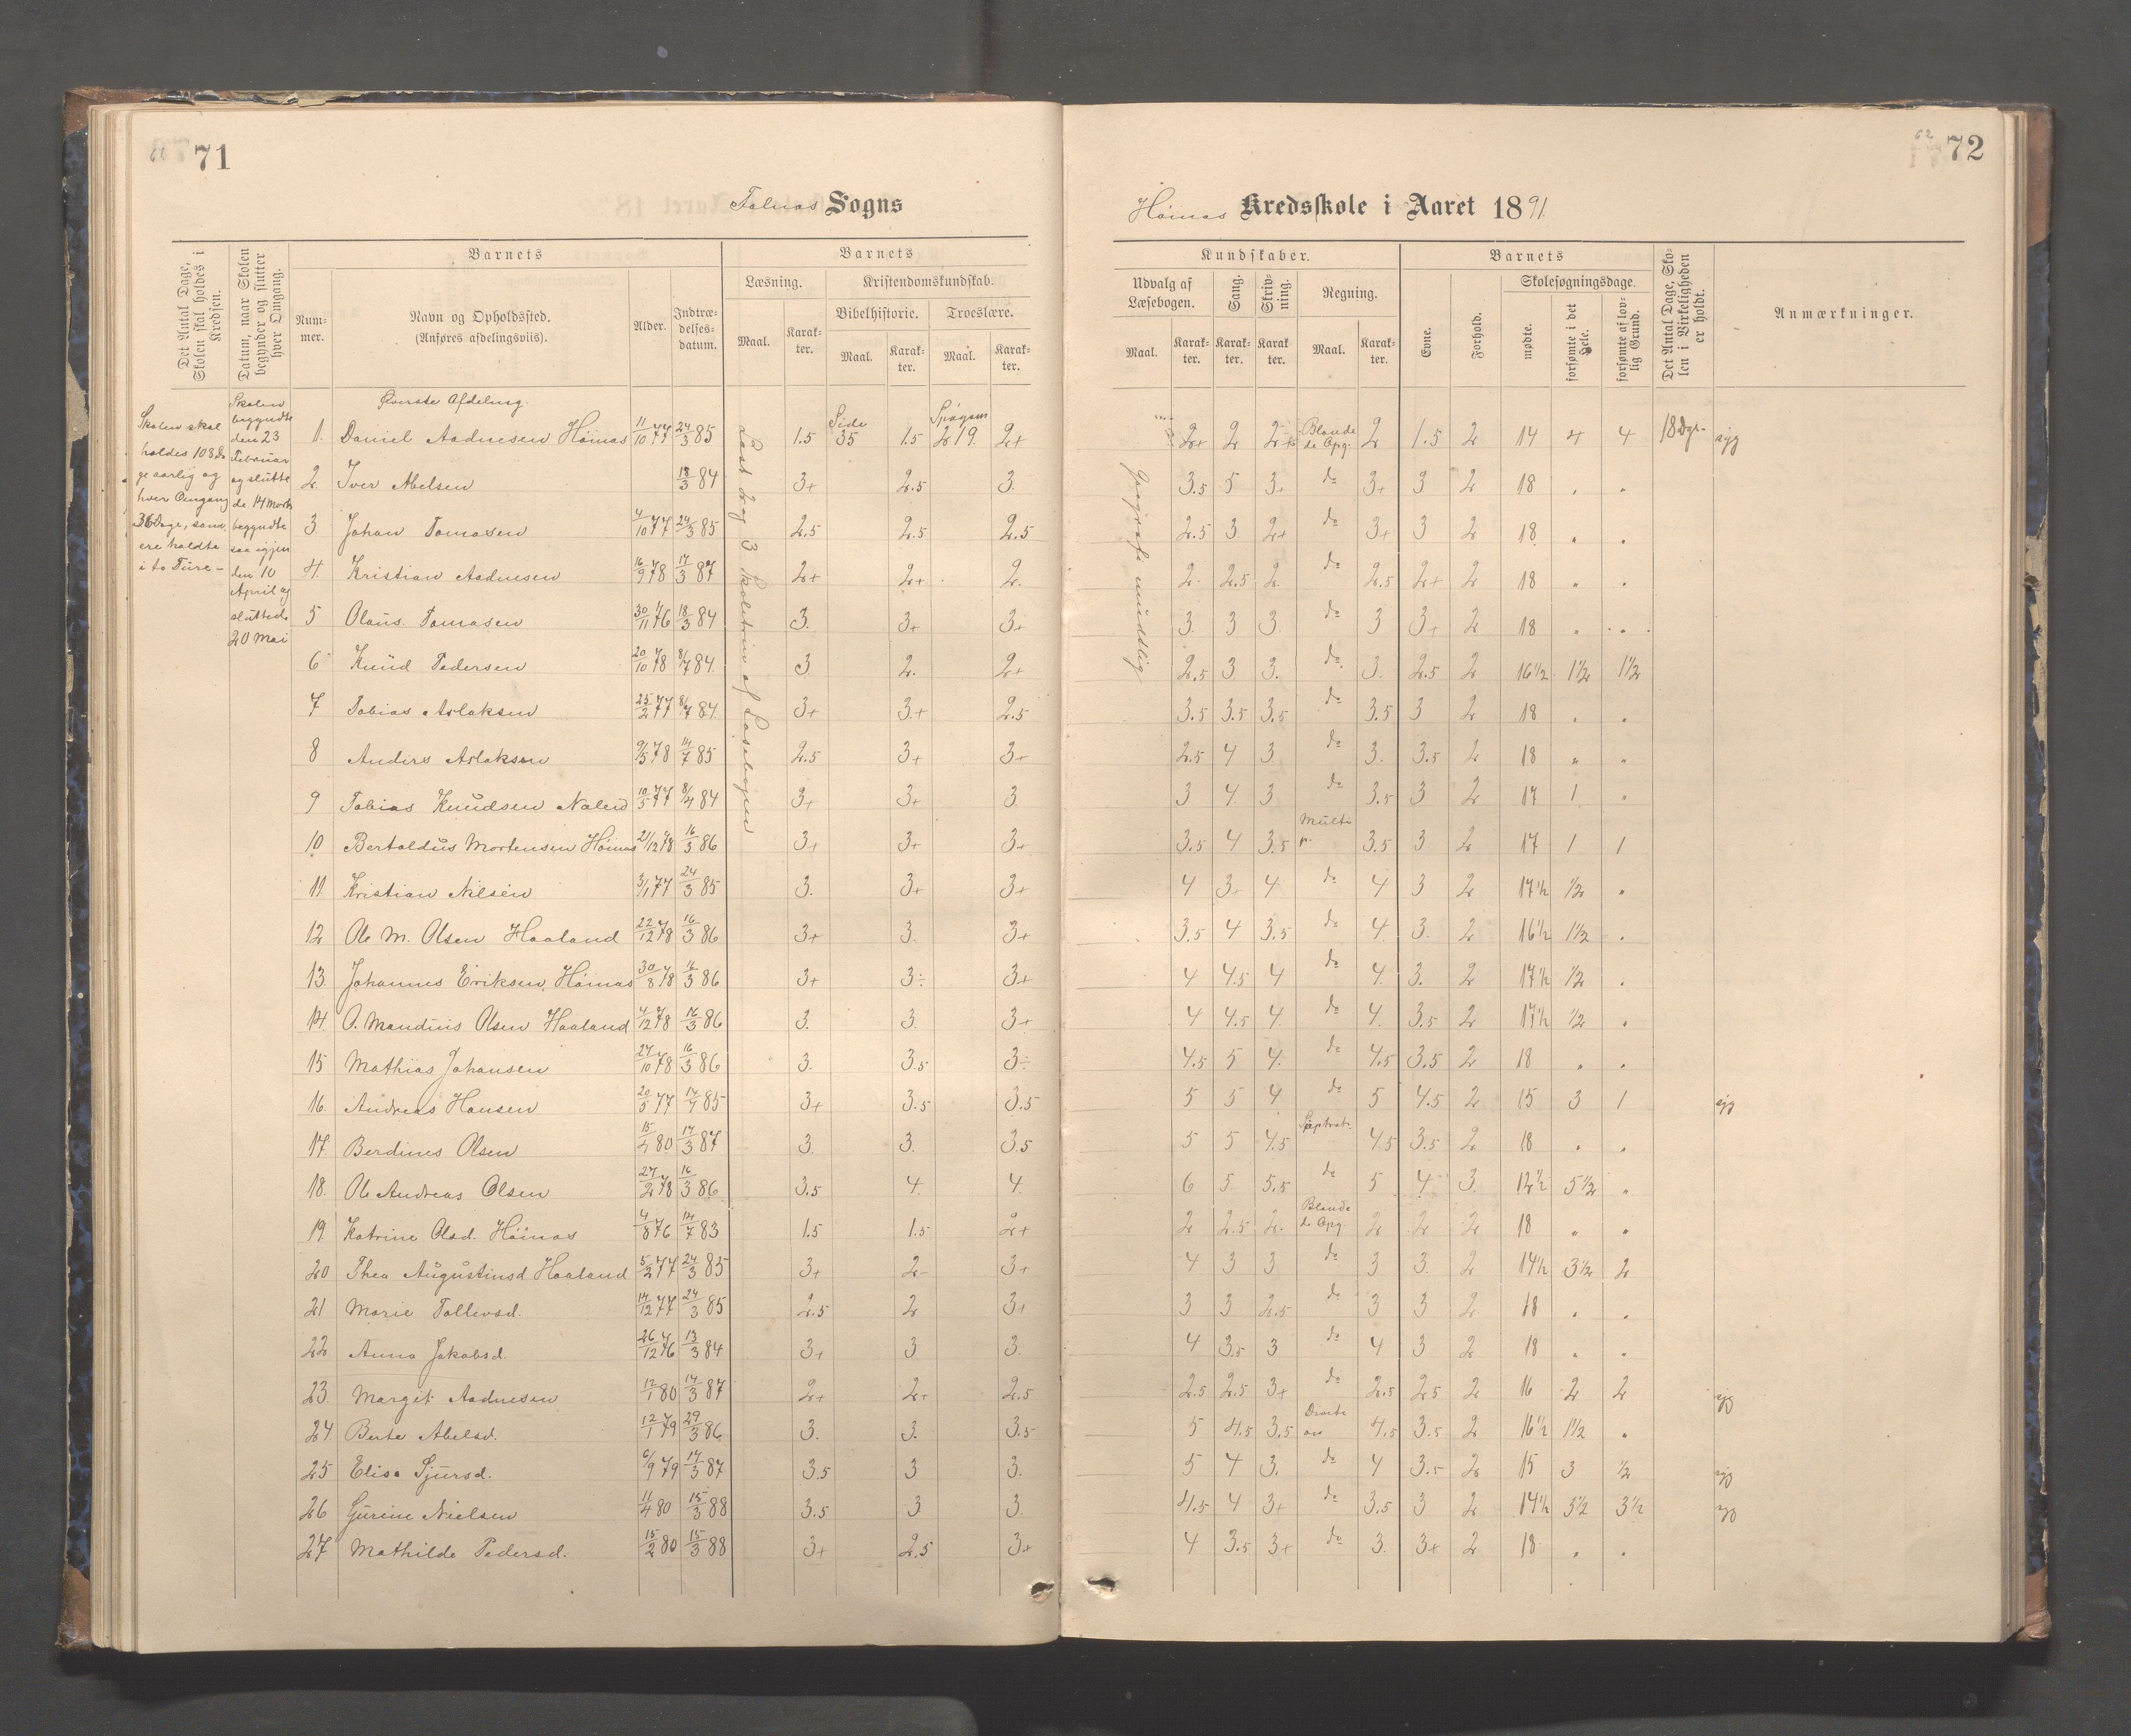 71
72
62
Falnæs Sogns
Høinæs Kredsskole i Aaret 1891.
Det Antal Dage, Skolen skal holdes i Kredsen.
Datum, naar Skolen begynder og slutter hver Omgang.
Barnets
Num-mer.
Navn og Opholdssted.
(Anføres afdelingsviis).
Alder.
Indtræ-delses-datum.
Barnets
Læsning.
Maal.
Karak-ter.
Kristendomskundskab.
Bibelhistorie.
Maal.
Karak-ter.
Troeslære.
Maal.
Karak-ter.
Kundskaber.
Udvalg af Læsebogen.
Maal.
Karak-ter.
Sang.
Karak-ter.
Skriv-ning.
Karak-ter.
Regning.
Maal.
Karak-ter.
Barnets
Evne.
Forhold.
Skolesøgningsdage.
mødte.
forsømte i det Hele.
forsømte af lov-lig Grund.
Det Antal Dage, Sko-len i Virkeligheden er holdt.
Anmærkninger.
Skolen skal
holdes 108 Da
ge aarlig og
hver Omgang
36 Dage, som
ere holdte
i to Ture -
Skolen
begyndte
den 23
Februar
og slutte
de 14 Marts
begyndte
saa igjen
den 10
April og
sluttede
20 Mai
Øverste Afdeling.
Læst i og 3 Skoletrin af Læsebogen
Geografi mundtlig
1. Daniel Aadnesen Høinæs 11/10 77 24/3 85 1.5 Side 35 1.5 Spørgsm 219. 2+ 2+ 2 2+ Blande de Opg. 2 1.5 2 14 4 4 18 Dge. syg
2. Iver Abelsen 18/3 84 3+ 2.5 3. 3.5 5 3+ do 3+ 3 2 18 " "
3. Johan Tomasen 4/10 77 24/3 85 2.5 2.5 2.5 2.5 3 2+ do 3+ 3 2 18 " "
4. Kristian Aadnesen 16/9 78 17/3 87 2+ 2+ 2. 2. 2.5 2. do 2.5 2+ 2 18 " "
5 Olaus Tomasen 30/11 76 18/3 84 3. 3+ 3+ 3. 3 3. do 3 3+ 2 18 " "
6 Knud Pedersen 20/10 78 8/7 84. 3. 2. 2+ 2.5 3 3. do. 3. 2.5 2 16½ 1½ 1½
7 Tobias Aslaksen 25/2 77 8/7 84. 3+ 3+ 2.5 3.5 3.5 3.5 do 3.5 3 2 18 " "
8 Anders Aslaksen 9/5 78 14/7 85 2.5 3+ 3+ 2.5 4 3. do 3. 3.5 2 18 " "
9 Tobias Knudsen 10/5 77 8/4 84 3+ 3+ 3. 3 4 3 do 3.5 3 2 17 1 "
10 Bertoldus Mortensen Høinæs 21/12 78 16/3 86 3+ 3+ 3+ 3.5 4 3.5 Multi p. 3.5 3 2 17 1 1
11. Kristian Nilsen 3/1 77 24/3 85 3. 3+ 3+ 4 3+ 4 do 4 3 2 17½ ½ "
12 Ole M. Olsen Haaland 22/12 78 16/3 86 3+ 3. 3+ 3.5 4 3.5 do 4 3. 2 16½ 1½ "
13. Johannes Eriksen, Høinæs 30/8 78 16/3 86 3+ 3÷ 3+ 4 4.5 4 do 4. 3. 2 17½ ½ "
14. O. Mandius Olsen Haaland 4/12 78 16/3 86 3. 3. 3+ 4 4.5 4. do 4. 3.5 2 17½ ½ "
15 Mathias Johansen 27/10 78 16/3 86 3. 3.5 3÷ 4.5 5 4. do 4.5 3.5 2 18 " "
16. Andreas Hansen 20/5 77 14/7 85 3+ 3.5 3.5 5 5 4 do 5 4.5 2 15 3 1 syg
17. Berdines Olsen 15/4 80 17/3 87 3. 3. 3.5 5 5 4.5 4.5 3.5 2 18 " "
18. Ole Andreas Olsen 27/2 78 16/3 86 3.5 4. 4. 6 5. 5.5 do 5 4 3. 12½ 5½ "
19. Katrine Olsd. Høinæs 4/8 76 14/7 83 1.5 1.5 2+ 2 2.5 2. Blande de Opg. 2 2 2 18 " "
20 Thea Augustinsd. Haaland 5/2 77 24/3 85 3+ 2- 3+ 4 3 3. do 3 3. 2 14½ 3½ 2
21 Marie Tollevsd. 14/12 77 24/3 85 2.5 2 3+ 3 3 2.5 do 3 3 2 18 " "
22 Anna Jakobsd. 26/12 76 13/3 84 3+ 3 3. 4 3.5 3 do 4 3 2 18 " "
23. Margit Aadnesen 12/1 80 14/3 87 2+ 2+ 2.5 2.5 2.5 3+ do 2.5 2.5 2 16 2 2 syg
24. Berta Abelsd. 12/1 79 29/3 86 3. 3. 3.5 5 4.5 3.5 4.5 3.5 2 16½ 1½ "
25 Elisa Sjursd. 6/9 79 14/3 87 3.5 3 3. 5 4 3. do 4 3.5 2 15 3 ½ syg
26 Gurine Nielsen 11/4 80 15/3 88 3.5 3 3 4.5 4 3+ do 3.5 3 2 14½ 3½ 3½ syg
27 Mathilde Pedersd. 15/2 80 15/3 88 3+ 2.5 3+ 4 3.5 3+ do 3. 3+ 2 18 " "